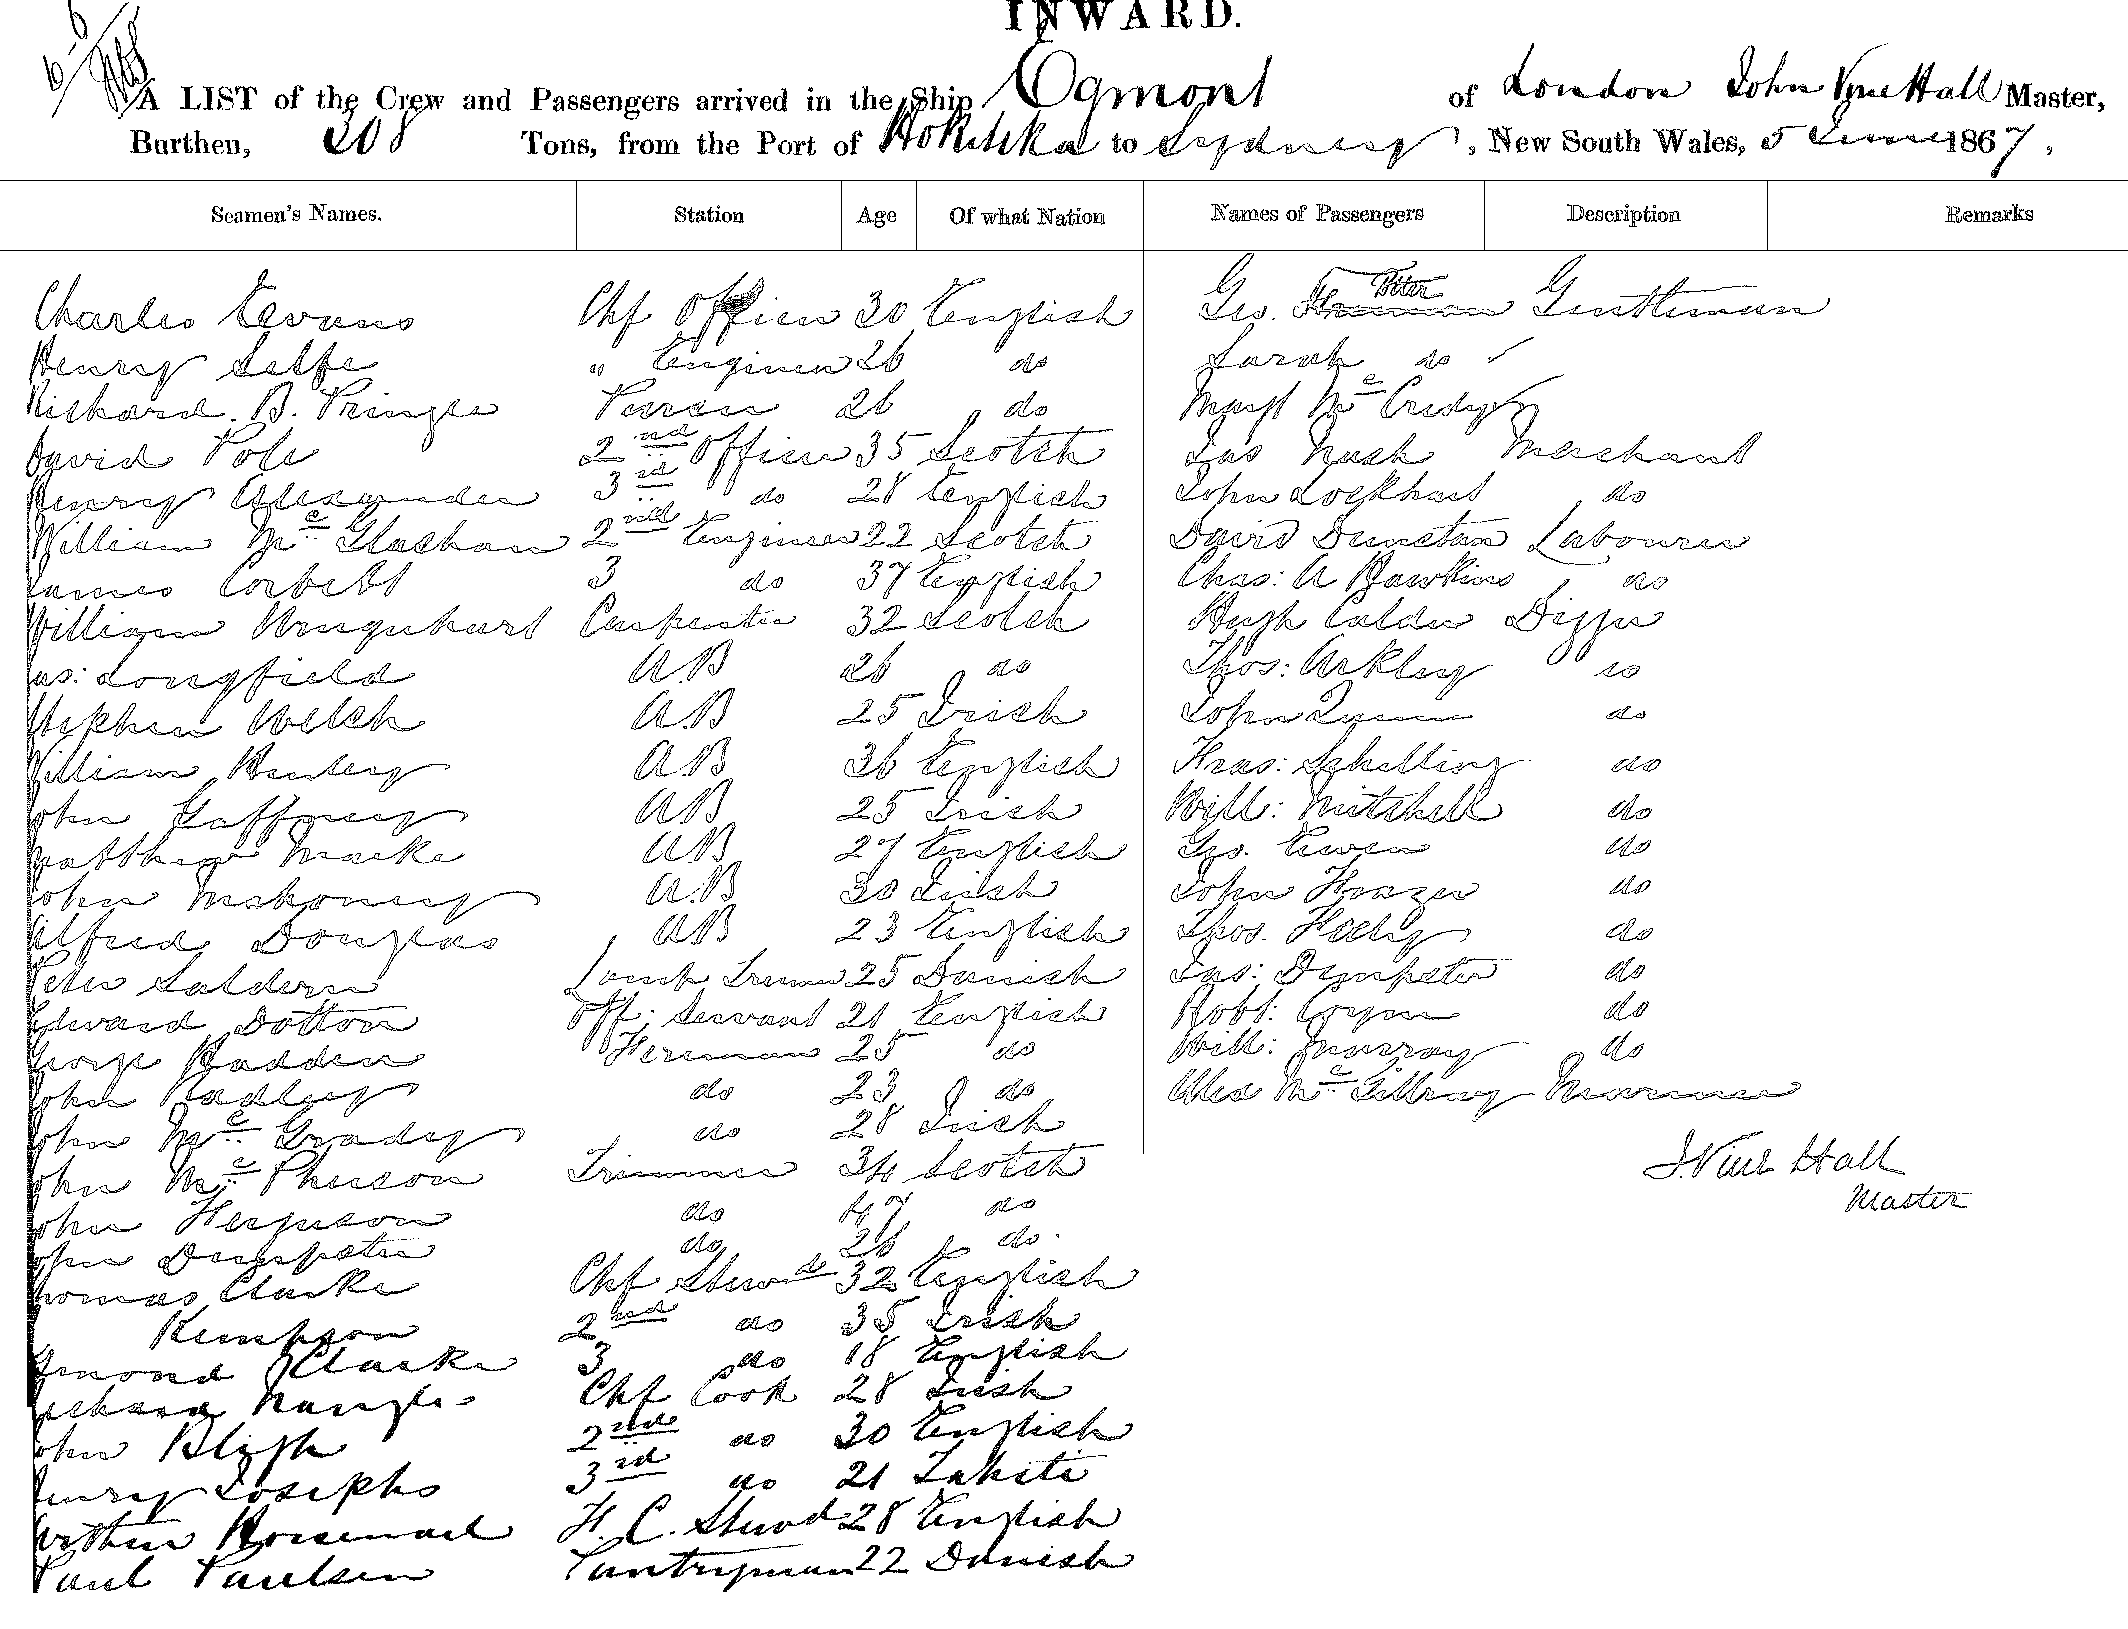 INWARD.
A LIST of the Crew and Passengers arrived in the Ship Egmont of London John Vine Hall Master,
Burthen, 308 Tons, from the Port of Hokitika to Sydney, New South Wales, 5 June 1867,
Seamen's Names. Station Age Of what Nation Names of Passengers Description Remarks
Charles Evans Chf Officer 30 English Geo. Fraeman Peter Gentleman
Henry Selfe " Engineer 26 do Sarah do
Richard. B. Pringle Purser 26 do Margt McCredy
David Pole 2nd Officer 35 Scotch Jas Nash Merchant
Henry Alexander 3rd do 28 English John Lockhart do
William McGlashan 2nd Engineer 22 Scotch David Dunstan Labourer
James Corbett 3 do 37 English Chas: A Hawkins do
William Urquhart Carpenter 32 Scotch Hugh Calder Digger
Jas: Longfield A.B 26 do Thos: Arkley do
Stephen Welch A.B 25 Irish John Quinn do
William Henley A.B 36 English Fras: Schelling do
John Gaffney A.B 25 Irish Will: Mitchell do
Matthew Marke A.B 27 English Geo. Ewen do
John Mahoney A.B 30 Irish John Frazer do
Alfred Douglas A.B 23 English Thos. Heely do
Peter Saldern Lamp Trimmer 25 Danish Jas: Dempster do
Edward Dotton Off: Servant 21 English Robt: Coyne do
George Hadden Fireman 25 do Will: Murray do
John Radley do 23 do Alex McGillray Mariner
John McGrady do 28 Irish
John McPherson Trimmer 34 Scotch J. Vine Hall
Master
John Ferguson do 47 do
John Dempster do 26 do
Thomas Clarke Chf Stewd 32 English
Kempson 2nd do 35 Irish
Edmond Clarke 3 do 18 English
Richard Nangle Chf Cook 28 Irish
John Bligh 2nd do 30 English
Henry Josephs 3rd do 21 Tahiti
Arthur Horsenail F. C. Stewd 28 English
Paul Paulsen Pantryman 22 Danish